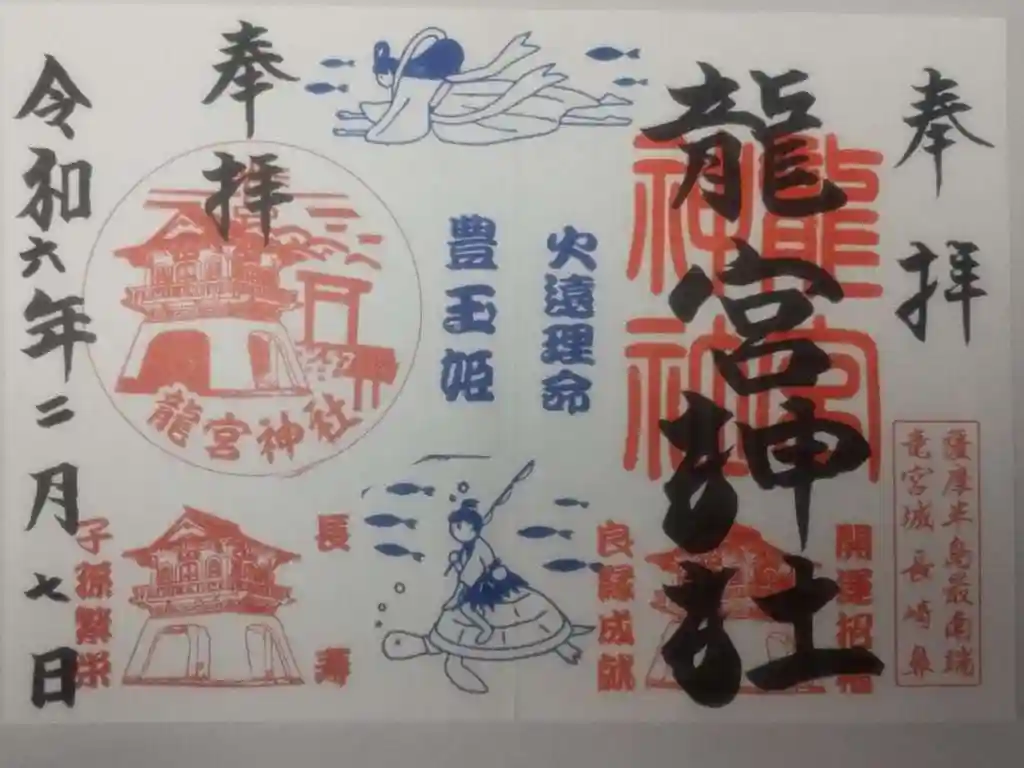 奉拝
龍宮神社
龍宮神社
薩摩半島最南端
竜宮城長崎鼻
開運招福
良縁成就
火遠理命
豊玉姫
奉拝
龍宮神社
長寿
子孫繁栄
令和六年二月七日